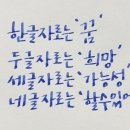 한글자로는 '꿈'
두글자로는 '희망'
세글자로는 '가능성'
네글자로는 '할수있어'